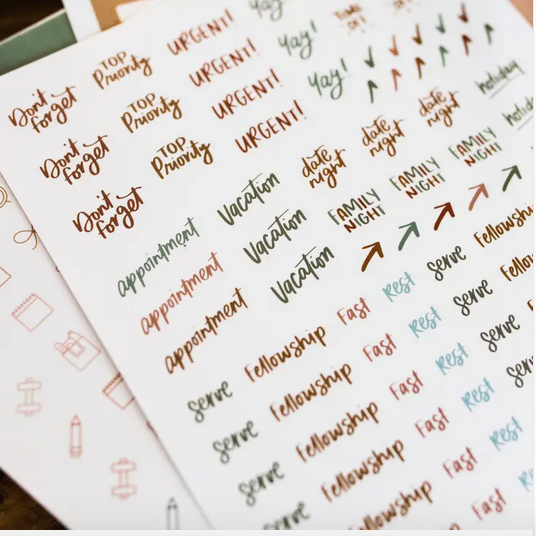 Don't forget
TOP Priority
URGENT!
Yay!
TIME OFF!
Don't forget
TOP Priority
URGENT!
Yay!
Don't forget
TOP Priority
URGENT!
Yay!
URGENT!
date night
date night
date night
holiday
holiday
appointment
Vacation
FAMILY NIGHT
FAMILY NIGHT
FAMILY NIGHT
appointment
Vacation
appointment
Vacation
serve
Fellowship
Fast
Rest
serve
Fellowship
serve
Fellowship
Fast
Rest
serve
Fellowship
serve
Fellowship
Fast
Rest
serve
serve
Fellowship
Fast
Rest
serve
Fellowship
Fast
Rest